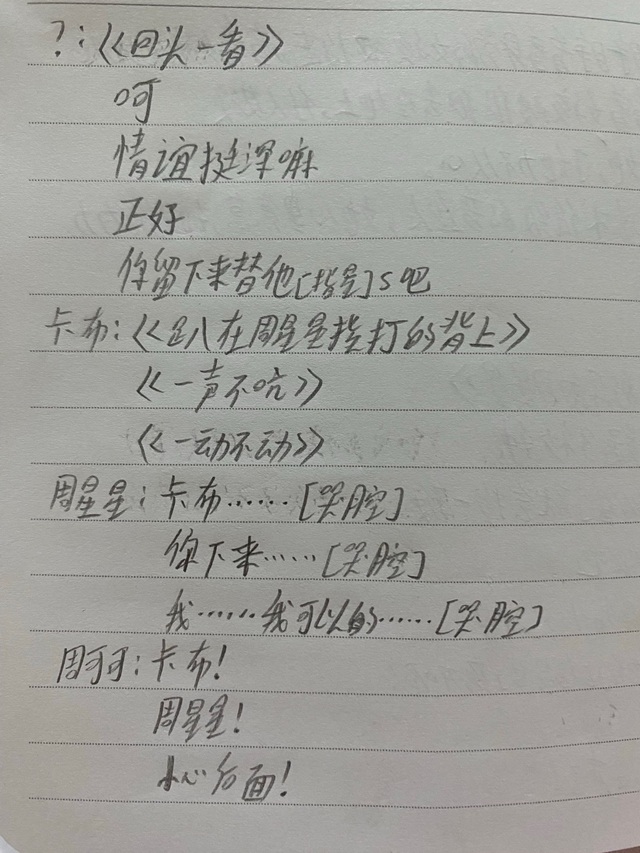 ?:《《回头一看》》
呵
情谊挺深嘛
正好
你留下来替他[指星]s吧
卡布:《《趴在周星星挨打的背上》》
《《一声不吭》》
《《一动不动》》
周星星:卡布……[哭腔]
你下来……[哭腔]
我……我可以的……[哭腔]
周可可:卡布!
周星星!
小心后面!